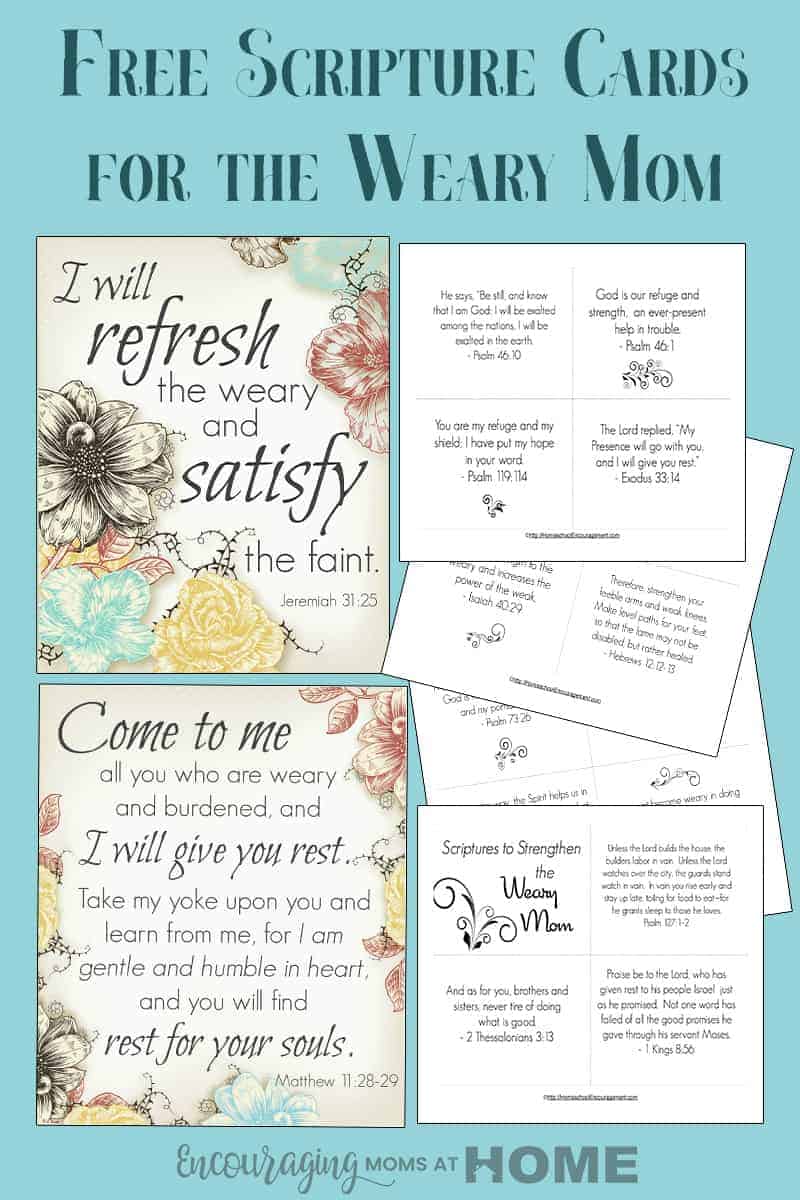 Free Scripture Cards
for the Weary Mom
I will
refresh
the weary
and
satisfy
the faint.
Jeremiah 31:25
He says, "Be still, and know
that I am God; I will be exalted
among the nations, I will be
exalted in the earth.
- Psalm 46:10
God is our refuge and
strength, an ever-present
help in trouble.
- Psalm 46:1
You are my refuge and my
shield; I have put my hope
in your word.
- Psalm 119:114
The Lord replied, "My
Presence will go with you,
and I will give you rest."
- Exodus 33:14
©http://HomeschoolEncouragement.com
to the
weary and increases the
power of the weak.
- Isaiah 40:29
Therefore, strengthen your
feeble arms and weak knees.
Make level paths for your feet,
so that the lame may not be
disabled, but rather healed.
- Hebrews 12:12-13
©http://HomeschoolEncouragement.com
God is
and my
- Psalm 73:26
the Spirit helps us in
become weary in doing
Come to me
all you who are weary
and burdened, and
I will give you rest.
Take my yoke upon you and
learn from me, for I am
gentle and humble in heart,
and you will find
rest for your souls.
Matthew 11:28-29
Scriptures to Strengthen
the
Weary
Mom
Unless the Lord builds the house, the
builders labor in vain. Unless the Lord
watches over the city, the guards stand
watch in vain. In vain you rise early and
stay up late, toiling for food to eat-for
he grants sleep to those he loves.
Psalm 127:1-2
And as for you, brothers and
sisters, never tire of doing
what is good.
- 2 Thessalonians 3:13
Praise be to the Lord, who has
given rest to his people Israel just
as he promised. Not one word has
failed of all the good promises he
gave through his servant Moses.
- 1 Kings 8:56
©http://HomeschoolEncouragement.com
Encouraging MOMS AT HOME